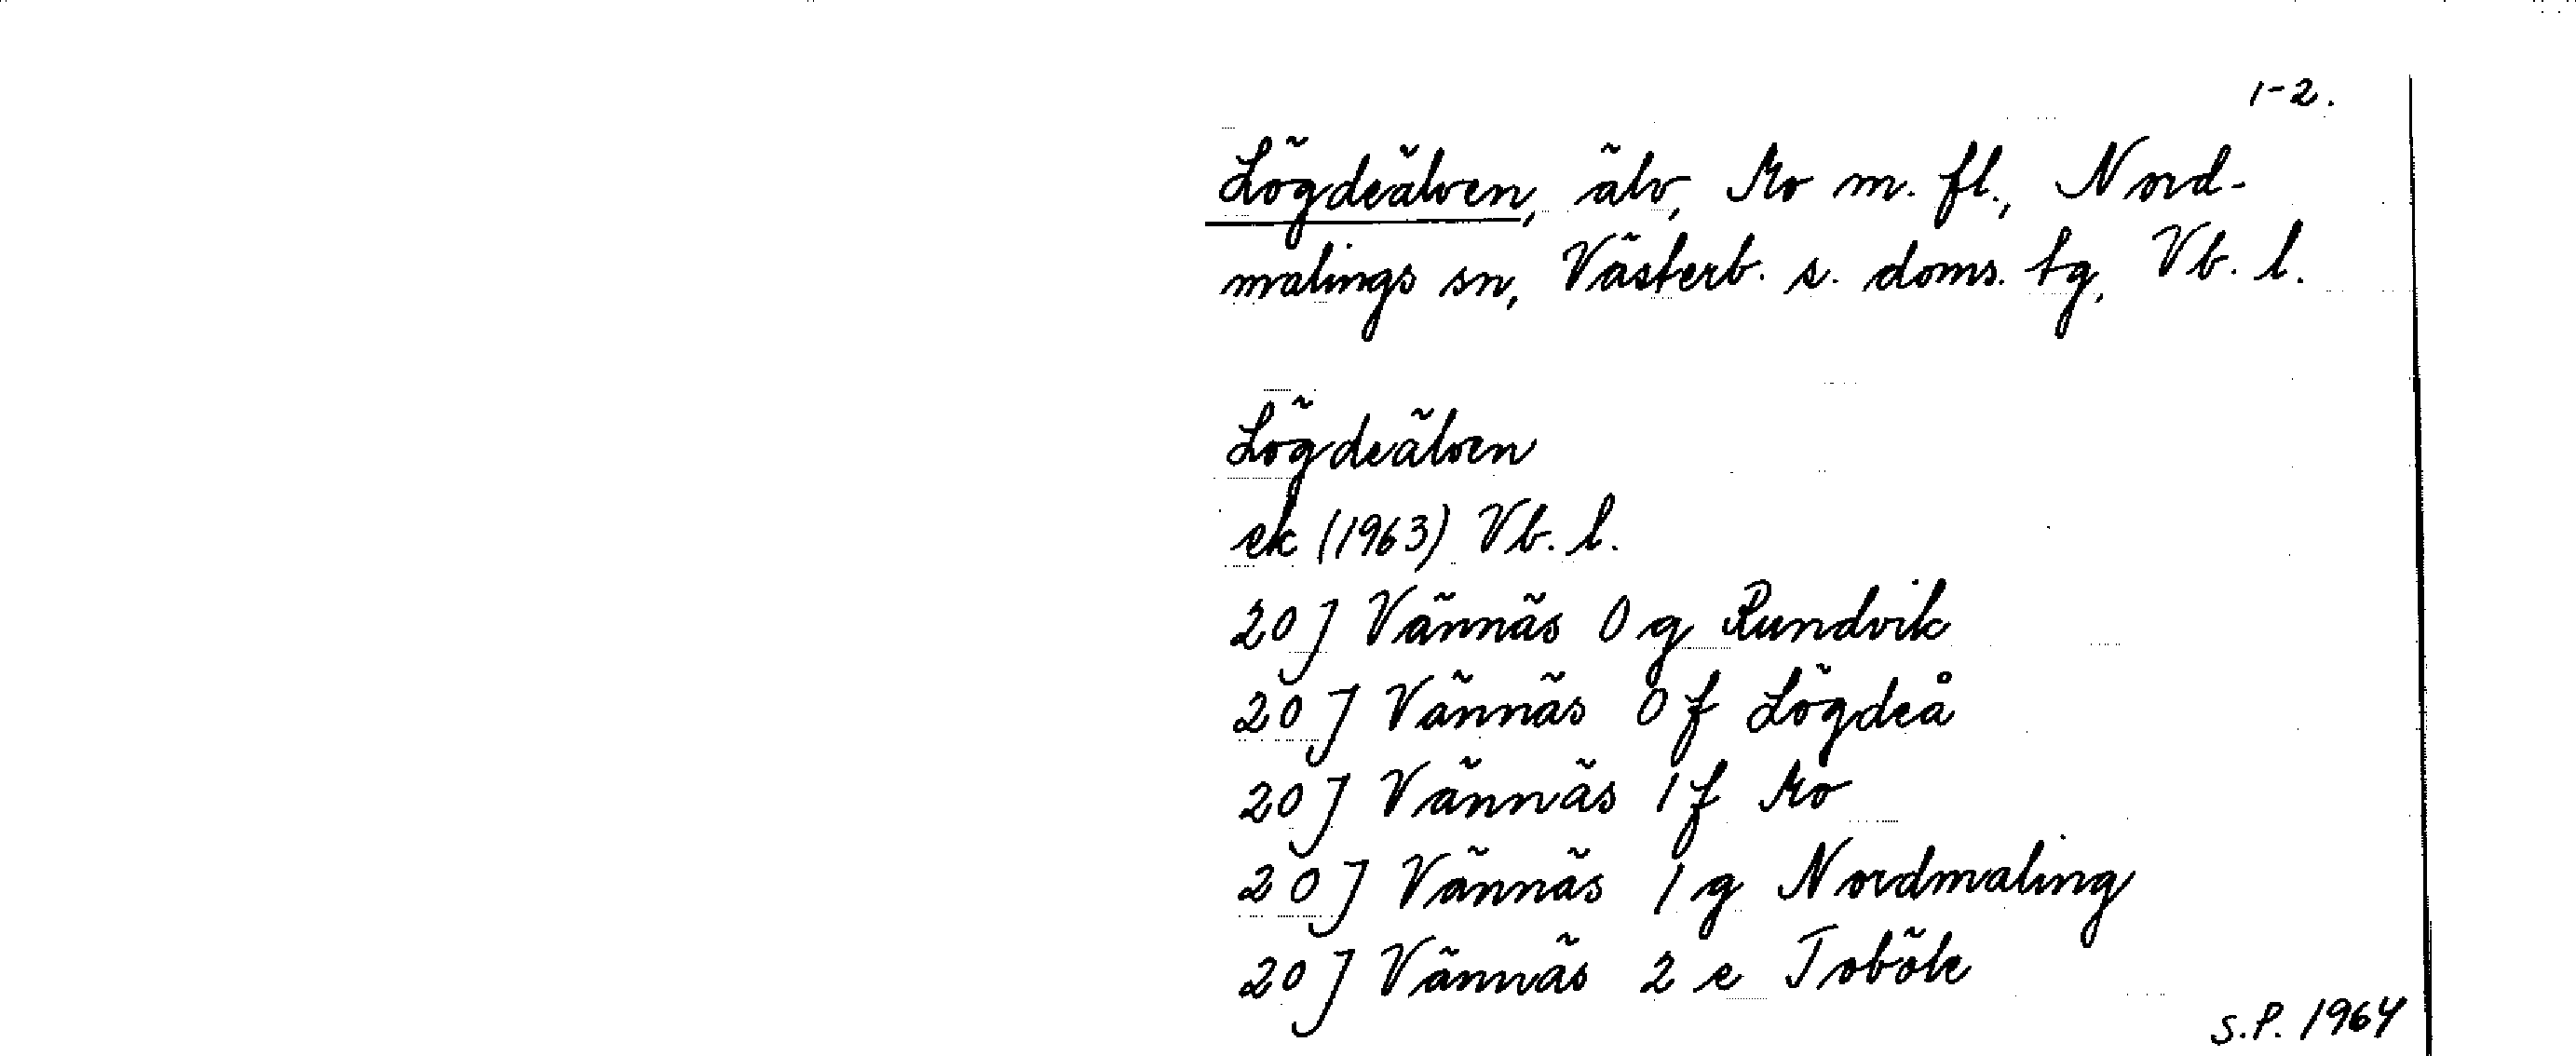 1-2.
Lögdeälven, älv, Mo m. fl., Nord-
malings sn, Västerb. s. doms. tg, Vb. l.
Lögdeälven
ek (1963) Vb. l.
20 J Vännäs 0 g Rundvik
20 J Vännäs 0 f Lögdeå
20 J Vännäs 1 f Mo
20 J Vännäs 1 g Nordmaling
20 J Vännäs 2 e Toböle
S.P. 1964